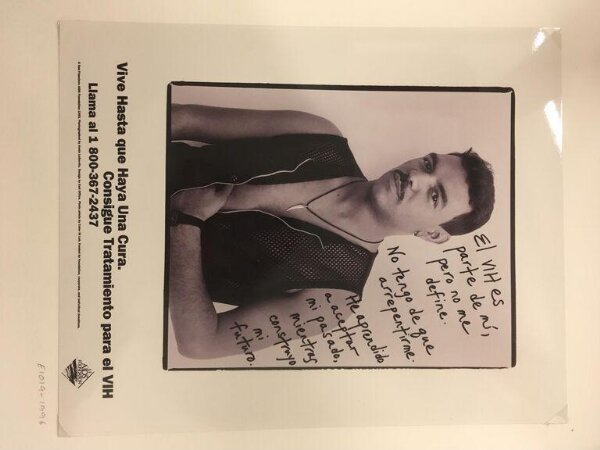 El VIH es
parte de mí,
pero no me
define.
No tengo de que
arrepentirme.
He aprendido
a aceptar
mi pasado,
mientras
construyo
mi
futuro.
Vive Hasta que Haya Una Cura.
Consigue Tratamiento para el VIH
Llama al 1 800-367-2437
E1019-1996